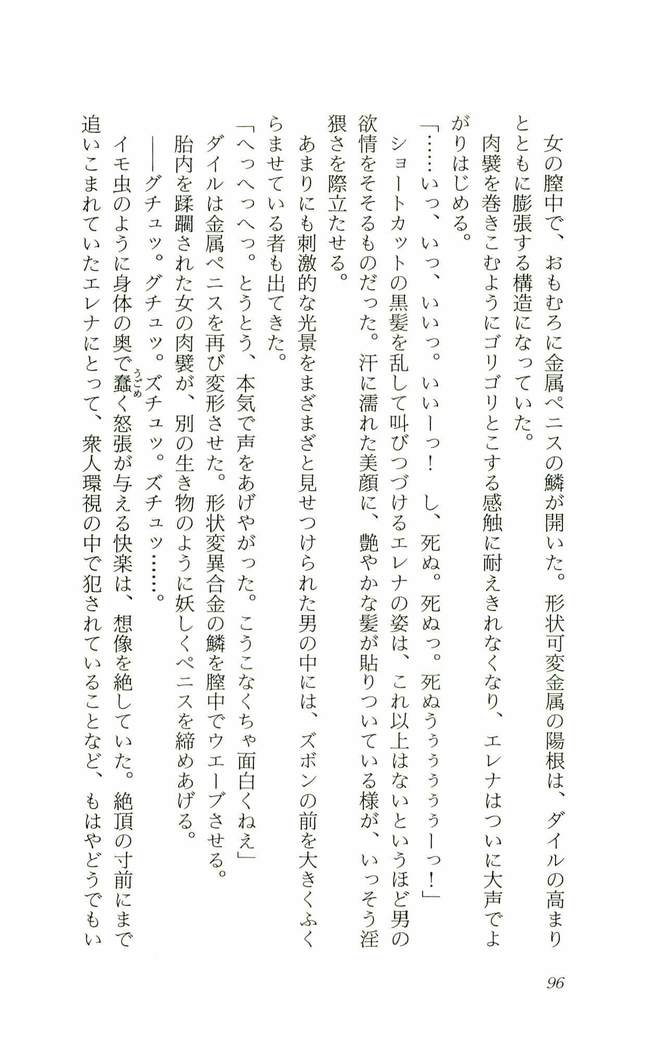 女の膣中で、おもむろに金属ペニスの鱗が開いた。形状可変金属の陽根は、ダイルの高まり
とともに膨張する構造になっていた。
肉襞を巻きこむようにゴリゴリとこする感触に耐えきれなくなり、エレナはついに大声でよ
がりはじめる。
「……いっ、いっ、いいっ。いいーっ！　し、死ぬ。死ぬっ。死ぬうぅぅぅぅぅーっ！」
ショートカットの黒髪を乱して叫びつづけるエレナの姿は、これ以上はないというほど男の
欲情をそそるものだった。汗に濡れた美顔に、艶やかな髪が貼りついている様が、いっそう淫
猥さを際立たせる。
あまりにも刺激的な光景をまざまざと見せつけられた男の中には、ズボンの前を大きくふく
らませている者も出てきた。
「へっへっへっ。とうとう、本気で声をあげやがった。こうこなくちゃ面白くねえ」
ダイルは金属ペニスを再び変形させた。形状変異合金の鱗を膣中でウエーブさせる。
胎内を蹂躙された女の肉襞が、別の生き物のように妖しくペニスを締めあげる。
――グチュッ。グチュッ。ズチュッ。ズチュッ……。
イモ虫のように身体の奥で蠢く怒張が与える快楽は、想像を絶していた。絶頂の寸前にまで
うごめ
追いこまれていたエレナにとって、衆人環視の中で犯されていることなど、もはやどうでもい
96